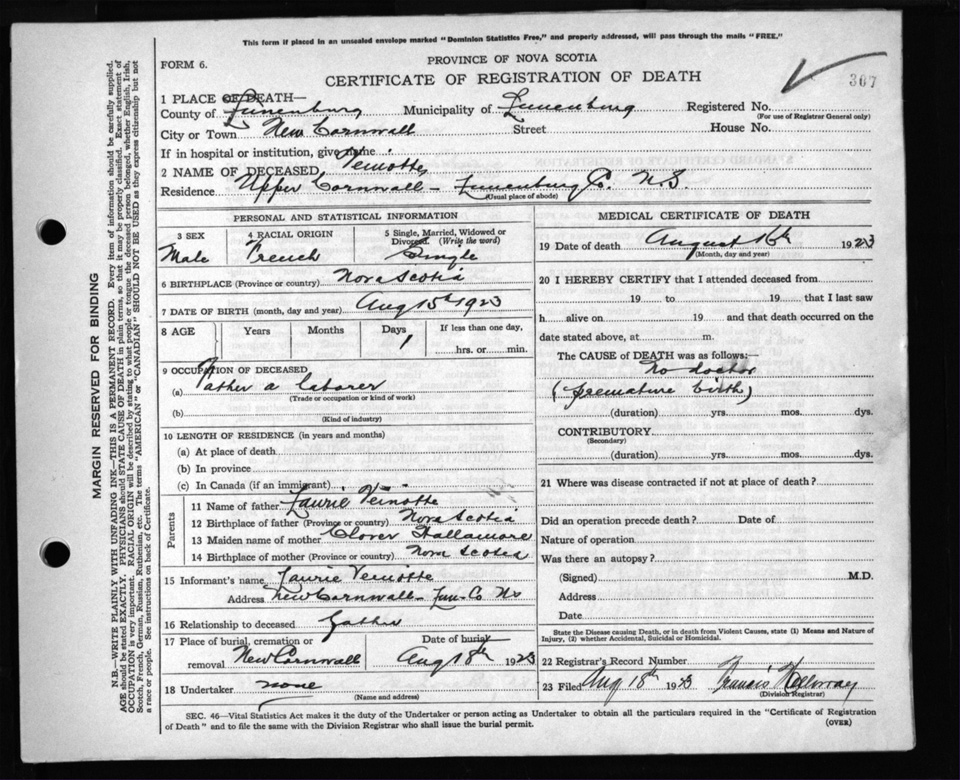 This form if placed in an unsealed envelope marked "Dominion Statistics Free," and properly addressed, will pass through the mails "FREE."
FORM 6.
PROVINCE OF NOVA SCOTIA
CERTIFICATE OF REGISTRATION OF DEATH
307
1 PLACE OF DEATH—
County of Lunenburg Municipality of Lunenburg Registered No.
(For use of Registrar General only)
City or Town New Cornwall Street House No.
If in hospital or institution, give name
2 NAME OF DECEASED Veinotte
Residence Upper Cornwall - Lunenburg Co. N.S.
(Usual place of abode)
PERSONAL AND STATISTICAL INFORMATION
3 SEX Male
4 RACIAL ORIGIN French
5 Single, Married, Widowed or Divorced. (Write the word) Single
6 BIRTHPLACE (Province or country) Nova Scotia
7 DATE OF BIRTH (month, day and year) Aug 15th 1923
8 AGE Years Months Days 1 If less than one day,
hrs. or min.
9 OCCUPATION OF DECEASED
(a) Father a laborer
(Trade or occupation or kind of work)
(b)
(Kind of industry)
10 LENGTH OF RESIDENCE (in years and months)
(a) At place of death
(b) In province
(c) In Canada (if an immigrant)
Parents
11 Name of father Laurie Veinotte
12 Birthplace of father (Province or country) Nova Scotia
13 Maiden name of mother Clover Hallamore
14 Birthplace of mother (Province or country) Nova Scotia
15 Informant's name Laurie Veinotte
Address New Cornwall - Lun - Co Ns
16 Relationship to deceased Father
17 Place of burial, cremation or removal New Cornwall
Date of burial Aug 18th 1923
18 Undertaker none
(Name and address)
MEDICAL CERTIFICATE OF DEATH
19 Date of death August 16th 1923
(Month, day and year)
20 I HEREBY CERTIFY that I attended deceased from
19 to 19 that I last saw
h alive on 19 and that death occurred on the
date stated above, at m.
The CAUSE of DEATH was as follows:—
No doctor
(premature birth)
(duration) yrs. mos. dys.
CONTRIBUTORY
(Secondary)
(duration) yrs. mos. dys.
21 Where was disease contracted if not at place of death?
Did an operation precede death? Date of
Nature of operation
Was there an autopsy?
(Signed) M.D.
Address
Date
State the Disease causing Death, or in death from Violent Causes, state (1) Means and Nature of
Injury, (2) whether Accidental, Suicidal or Homicidal.
22 Registrar's Record Number
23 Filed Aug 18th 1923 Francis
(Division Registrar)
SEC. 46—Vital Statistics Act makes it the duty of the Undertaker or person acting as Undertaker to obtain all the particulars required in the "Certificate of Registration
of Death" and to file the same with the Division Registrar who shall issue the burial permit.
(OVER)
MARGIN RESERVED FOR BINDING
N.B.—WRITE PLAINLY WITH UNFADING INK—THIS IS A PERMANENT RECORD. Every item of information should be carefully supplied.
AGE should be stated EXACTLY. PHYSICIANS should STATE CAUSE OF DEATH in plain terms, so that it may be properly classified. Exact statement of
OCCUPATION is very important. RACIAL ORIGIN will be described by stating to what people or tongue the deceased person belonged, whether English, Irish,
Scotch, French, German, Russian, Ruthenian, etc. The terms "AMERICAN" or "CANADIAN" SHOULD NOT BE USED as they express citizenship but not
a race or people. See instructions on back of Certificate.